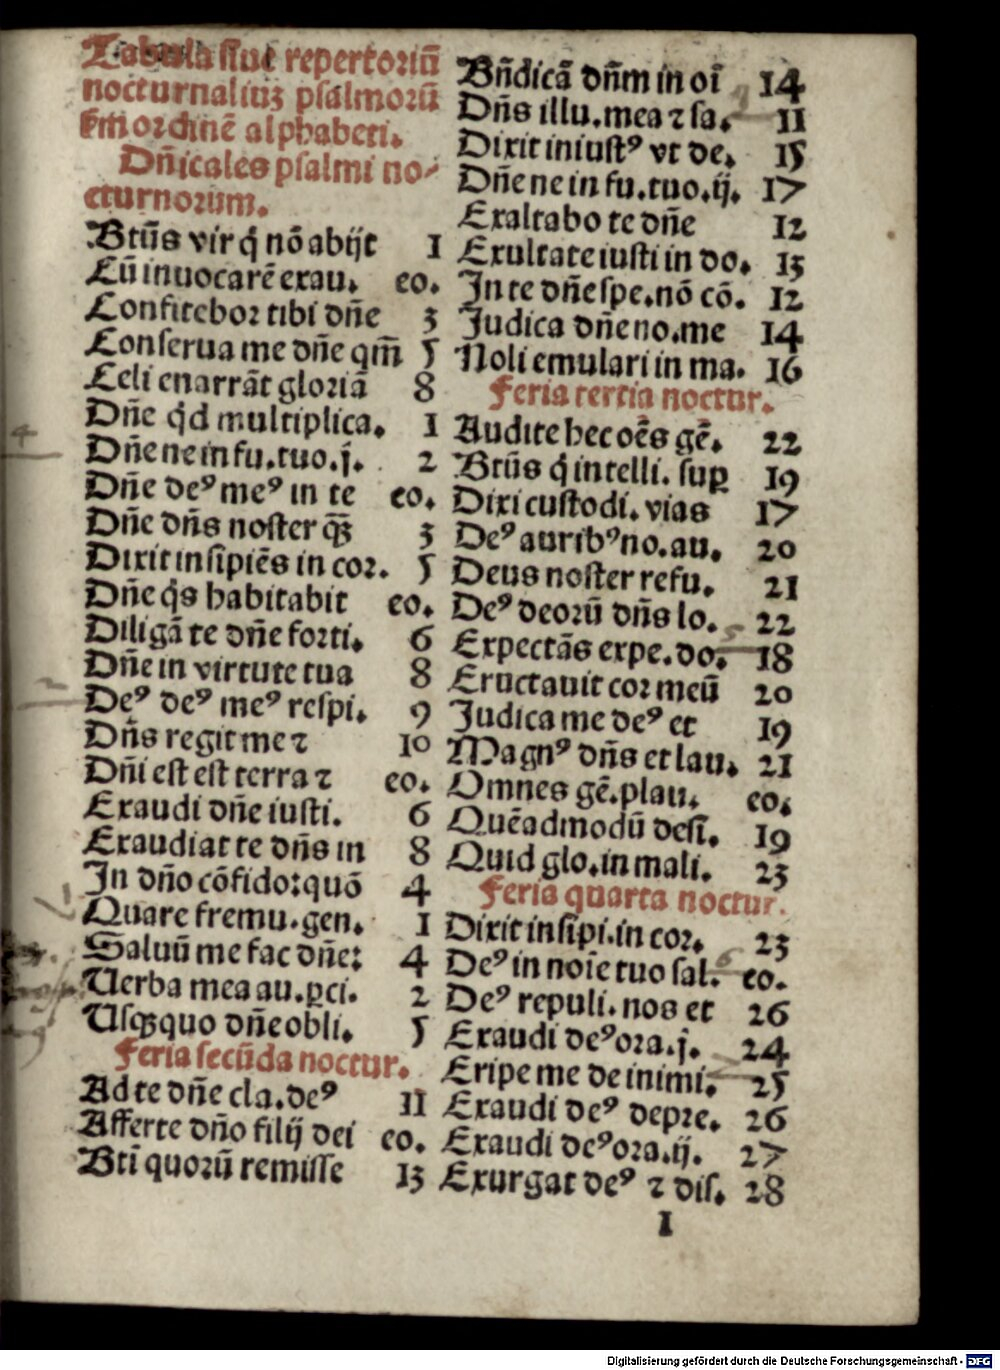 Tabula siue repertoriū
nocturnaliuꝫ psalmorū
ẜm ordinē alphabeti.
Dn̄icales psalmi no-
cturnorum.
Btūs vir q̇ nō abijt 1
Cū inuocarē exau. eo.
Confitebor tibi dn̄e 3
Conserua me dn̄e qm̄ 5
Celi enarrāt gloriā 8
Dn̄e q̇d multiplica. 1
Dn̄e ne in fu.tuo.j. 2
Dn̄e deꝰ meꝰ in te eo.
Dn̄e dn̄s noster qꝫ̄ 3
Dixit insipiēs in cor. 5
Dn̄e q̇s habitabit eo.
Diligā te dn̄e forti. 6
Dn̄e in virtute tua 8
Deꝰ deꝰ meꝰ respi. 9
Dn̄s regit me ⁊ 10
Dn̄i est est terra ⁊ eo.
Exaudi dn̄e iusti. 6
Exaudiat te dn̄s in 8
In dn̄o cōfido:quō 4
Quare fremu.gen. 1
Saluū me fac dn̄e: 4
Uerba mea au.ꝑci. 2
Usqꝫquo dn̄e obli. 5
Feria secūda noctur.
Ad te dn̄e cla.deꝰ 11
Afferte dn̄o filij dei eo.
Bti̅ quorū remisse 13
Bn̄dicā dn̄m in oi̅ 14
Dn̄s illu.mea ⁊ sa. 11
Dixit iniustꝰ vt de. 15
Dn̄e ne in fu.tuo.ij. 17
Exaltabo te dn̄e 12
Exultate iusti in do. 13
In te dn̄e spe.nō cō. 12
Judica dn̄e no.me 14
Noli emulari in ma. 16
Feria tertia noctur.
Audite hec oēs gē. 22
Btūs q̇ intelli. suꝑ 19
Dixi custodi. vias 17
Deꝰ auribꝰ no.au. 20
Deus noster refu. 21
Deꝰ deorū dn̄s lo. 22
Expectās expe.do. 18
Eructauit cor meū 20
Judica me deꝰ et 19
Magnꝰ dn̄s et lau. 21
Omnes gē.plau. eo.
Quēadmodū desi̅. 19
Quid glo.in mali. 23
Feria quarta noctur.
Dixit insipi.in cor. 23
Deꝰ in noi̅e tuo sal. eo.
Deꝰ repuli.nos et 26
Exaudi deꝰ ora.j. 24
Eripe me de inimi. 25
Exaudi deꝰ depre. 26
Exaudi deꝰ ora.ij. 27
Exurgat deꝰ ⁊ dis. 28
I
Digitalisierung gefördert durch die Deutsche Forschungsgemeinschaft - DFG